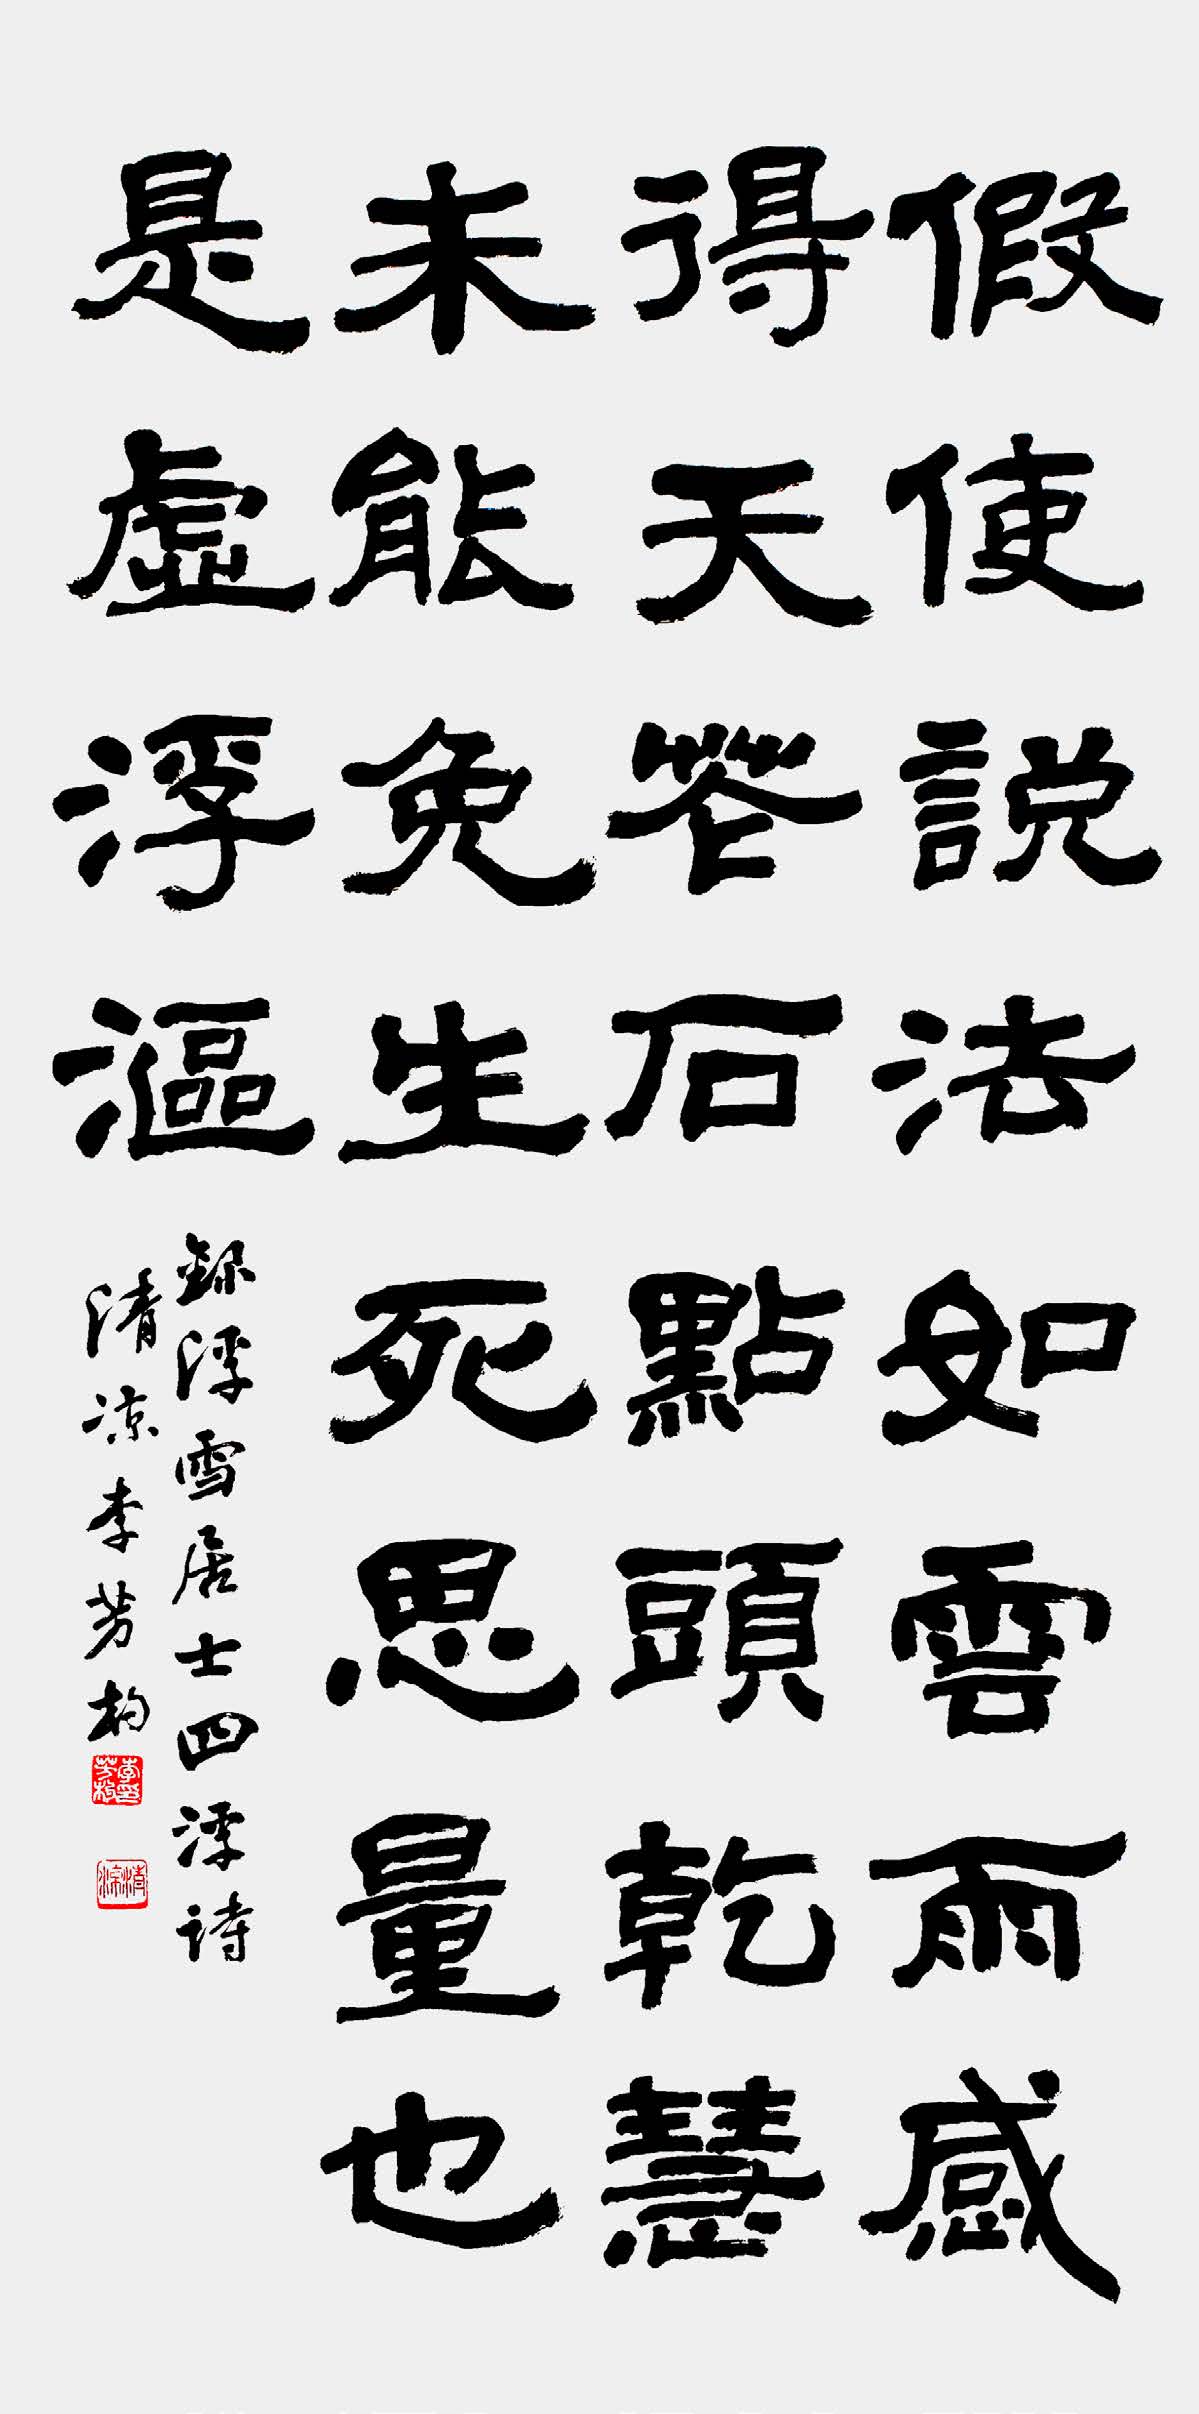 假使説法如雲雨感
得天花石點頭乾慧
未能免生死思量也
是虛浮漚
録浮雪居士四浮詩
清凉李芳柏